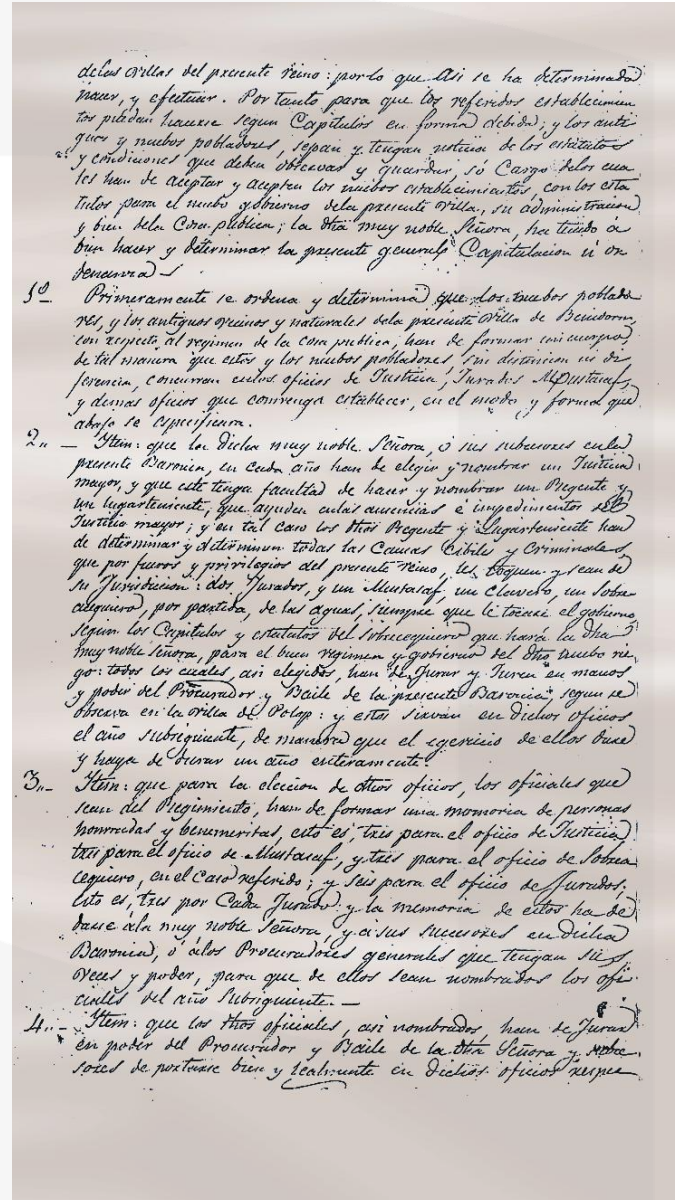 delas villas del presente reino: por lo que Asi se ha determinado
hacer, y efectuar. Por tanto para que los referidos establecimien
tos puedan hacerse segun Capitulos en forma debida; y los anti
guos y nuebos pobladores, sepan y tengan noticia de los estatutos
y condiciones que deben observar y guardar, só Cargo delos cua
les han de aceptar y acepten los nuebos establecimientos, con los esta
tutos para el nuebo gobierno dela presente villa, su administracion
y bien dela Cosa publica; la dha muy noble Señora, ha tenido á
bien hacer y determinar la presente general Capitulacion ú or
denanza
1º Primeramente se ordena y determina que los nuebos poblado
res, y los antiguos vecinos y naturales dela presente villa de Benidorm,
con respecto al regimen de la cosa publica, han de formar un cuerpo,
de tal manera que estos y los nuebos pobladores, sin distincion ni di
ferencia, concurran enlos oficios de Justicia, Jurados, Mustasaf,
y demas oficios que convenga establecer, en el modo y forma que
abajo se especificara.
2.. — Item: que la dicha muy noble Señora, ó sus subcesores enla
presente Baronia, en cada año han de elegir y nombrar un Justicia
mayor, y que este tenga facultad de hacer y nombrar un Regente y
un lugarteniente, que ayuden enlas ausencias é impedimentos del
Justicia mayor; y en tal caso los dhos Regente y Lugarteniente han
de determinar y determinen todas las Causas Cibiles y Criminales
que por fueros y privilegios del presente reino, les toquen y sean de
su Jurisdicion: dos Jurados, y un Mustasaf, un Clavero, un Sobre
cequiero, por partida, de las aguas, siempre que le tocare el gobierno,
segun los Capitulos y estatutos del sobrecequiero que hará la dha
muy noble Señora, para el buen regimen y gobierno del dho nuebo rie
go: todos los cuales, asi elegidos, han de Jurar y Juren en manos
y poder del Procurador y Baile de la presente Baronia, segun se
observa en la villa de Polop: y estos sirvan en dichos oficios
el año subsiguiente, de manera que el egercicio de ellos dure
y haya de durar un año enteramente
3.. — Item: que para la eleccion de dhos oficios, los oficiales que
sean del Regimiento, han de formar una memoria de personas
honrradas y benemeritas, esto es, tres para el oficio de Justicia,
tres para el oficio de Mustasaf, y tres para el oficio de Sobre
cequiero, en el caso referido; y seis para el oficio de Jurados,
esto es, tres por Cada Jurado: y la memoria de estos ha de
darse ála muy noble Señora, y á sus sucesores en dicha
Baronia, ó álos Procuradores generales que tengan sus
veces y poder, para que de ellos sean nombrados los ofi
ciales del año Subsiguiente. —
4.. — Item: que los dhos oficiales, asi nombrados, han de Jurar
en poder del Procurador y Baile de la dha Señora y subce
sores de portarse bien y lealmente en dichos oficios respec